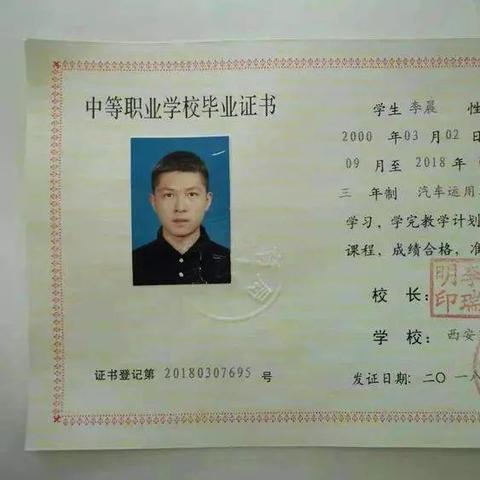 中等职业学校毕业证书
证书登记第 20180307695 号
学生 李晨 性
2000 年 03 月 02 日
09 月至 2018 年
三 年制 汽车运用
学习，学完教学计划
课程，成绩合格，准
校 长：
学 校： 西安
发证日期：二〇一八